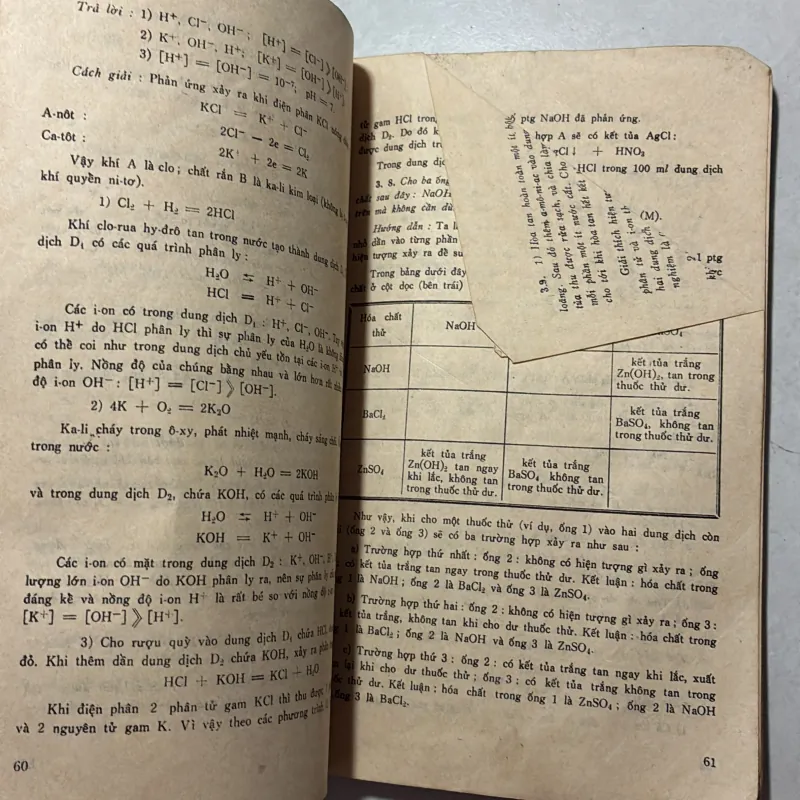 Trả lời : 1) H⁺, Cl⁻, OH⁻ ; [H⁺] = [Cl⁻] ⟫ [OH⁻].
2) K⁺, OH⁻, H⁺; [K⁺] = [OH⁻] ⟫ [H⁺]
3) [H⁺] = [OH⁻] = 10⁻⁷; pH = 7.
Cách giải : Phản ứng xảy ra khi điện phân KCl nóng
KCl = K⁺ + Cl⁻
A-nôt : 2Cl⁻ − 2e = Cl₂
Ca-tôt : 2K⁺ + 2e = 2K
Vậy khí A là clo; chất rắn B là ka-li kim loại (không
khí quyển ni-tơ).
1) Cl₂ + H₂ = 2HCl
Khí clo-rua hy-đrô tan trong nước tạo thành dung dịch
dịch D₁ có các quá trình phân ly :
H₂O ⇆ H⁺ + OH⁻
HCl = H⁺ + Cl⁻
Các i-on có trong dung dịch D₁ : H⁺, Cl⁻, OH⁻.
i-on H⁺ do HCl phân ly thì sự phân ly của H₂O là không
có thể coi như trong dung dịch chủ yếu tồn tại các i-on H⁺
phân ly. Nồng độ của chúng bằng nhau và lớn hơn rất
độ i-on OH⁻ : [H⁺] = [Cl⁻] ⟫ [OH⁻].
2) 4K + O₂ = 2K₂O
Ka-li cháy trong ô-xy, phát nhiệt mạnh, cháy sáng
trong nước :
K₂O + H₂O = 2KOH
và trong dung dịch D₂, chứa KOH, có các quá trình phân
H₂O ⇆ H⁺ + OH⁻
KOH = K⁺ + OH⁻
Các i-on có mặt trong dung dịch D₂ : K⁺, OH⁻, H⁺
lượng lớn i-on OH⁻ do KOH phân ly ra, nên sự phân ly
đáng kể và nồng độ i-on H⁺ là rất bé so với nồng độ
[K⁺] = [OH⁻] ⟫ [H⁺].
3) Cho rượu quỳ vào dung dịch D₁ chứa HCl,
đỏ. Khi thêm dần dung dịch D₂ chứa KOH, xảy ra phản
HCl + KOH = KCl + H₂O
Khi điện phân 2 phân tử gam KCl thì thu được
và 2 nguyên tử gam K. Vì vậy theo các phương trình
60
tử gam HCl tron
dịch D₂. Do đó k
được dung dịch
Trong dung dịc
3. 8. Cho ba ống
chất sau đây : NaOH
trên mà không cần dù
Hướng dẫn : Ta lấ
nhỏ dần vào từng phần
hiện tượng xảy ra để su
Trong bảng dưới đây
chất ở cột dọc (bên trái)
ptg NaOH đã phản ứng.
hợp A sẽ có kết tủa AgCl :
Cl↓ + HNO₃
HCl trong 100 ml dung dịch
(M).
3.9. 1) Hòa tan hoàn toàn một ít
loãng. Sau đó thêm a-mô-ni-ac vào dung
tủa thu được rửa sạch, và chia
mỗi phần một ít nước cất. Cho
cho tới khi hòa tan hết kết
Giải thích hiện tư
phân tử và i-on th
hai dung dịch
nghiệm là
0,1 ptg
Hóa chất thử NaOH SO₄
NaOH kết tủa trắng Zn(OH)₂, tan trong thuốc thử dư.
BaCl₂ kết tủa trắng BaSO₄, không tan trong thuốc thử dư.
ZnSO₄ kết tủa trắng Zn(OH)₂ tan ngay khi lắc, không tan trong thuốc thử dư. kết tủa trắng BaSO₄ không tan trong thuốc thử dư.
Như vậy, khi cho một thuốc thử (ví dụ, ống 1) vào hai dung dịch còn
(ống 2 và ống 3) sẽ có ba trường hợp xảy ra như sau :
a) Trường hợp thứ nhất : ống 2 : không có hiện tượng gì xảy ra ; ống
có kết tủa trắng tan ngay trong thuốc thử dư. Kết luận : hóa chất trong
1 là NaOH ; ống 2 là BaCl₂ và ống 3 là ZnSO₄.
b) Trường hợp thứ hai : ống 2 : không có hiện tượng gì xảy ra ; ống 3 :
kết tủa trắng, không tan khi cho dư thuốc thử. Kết luận : hóa chất trong
1 là BaCl₂ ; ống 2 là NaOH và ống 3 là ZnSO₄.
c) Trường hợp thứ 3 : ống 2 : có kết tủa trắng tan ngay khi lắc, xuất
lại khi cho dư thuốc thử ; ống 3 : có kết tủa trắng không tan trong
thuốc thử dư. Kết luận : hóa chất trong ống 1 là ZnSO₄ ; ống 2 là NaOH
ống 3 là BaCl₂.
61